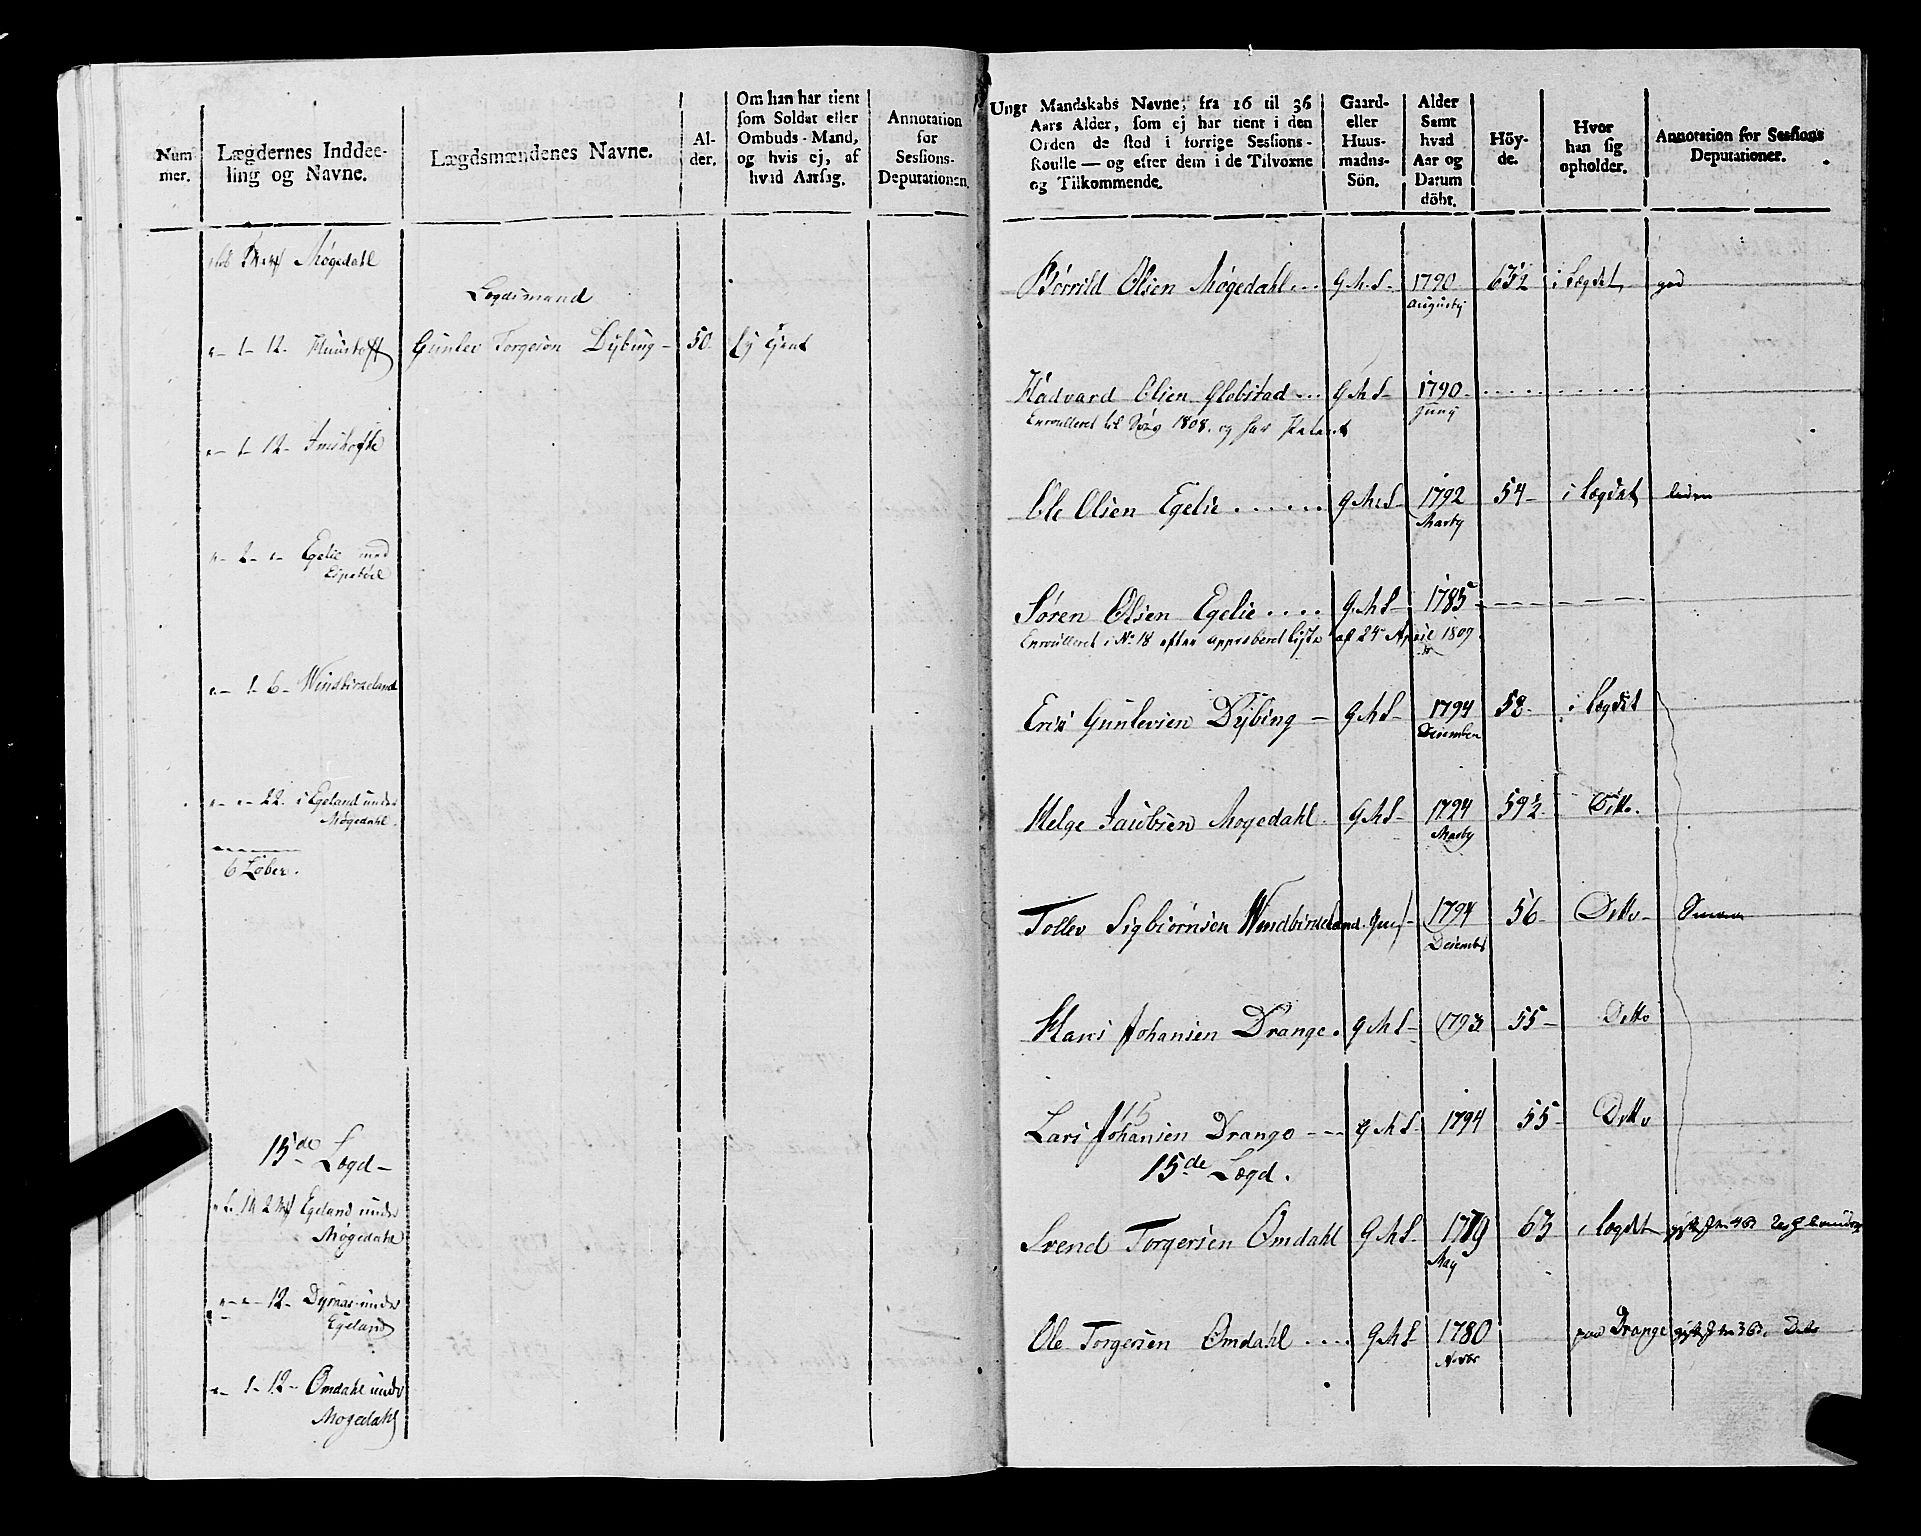 Num
mer.
Lægdernes Inddee-
ling og Navne.
Lægdsmændenes Navne.
Al-
der.
Om han har tient
som Soldat eller
Ombuds-Mand,
og hvis ej, af
hvad Aarsag.
Annotation
for
Sessions-
Deputationen.
Møgedahl
Lægdsmand
1 - 12. Huustoft
Gunlev Torgesøn Dybing - 50. Ej tient
1 - 12 -
2 - Egelie med
Espetvæl
1 - 6 - Windbirkeland
22. i Egeland under
Møgedahl.
6 Løber.
15de Lægd -
Egeland under
Møgedahl
12 - Dyrnas under
Egeland
1 - 12 - Omdahl under
Møgedahl
Ungt Mandskabs Navne, fra 16 til 36
Aars Alder, som ej har tient i den
Orden de stod i forrige Sessions-
Roulle — og efter dem i de Tilvoxne
og Tilkommende.
Gaard-
eller
Huus-
madns-
Sön.
Alder
Samt
hvad
Aar og
Datum
döbt.
Höy-
de.
Hvor
han sig
opholder.
Annotation for Sessions
Deputationer.
Børrild Olsen Møgedahl... G.M.S. 1790 63½ i Lægdet, god
Augusty
Hadvard Olsen Glebstad ... G M S- 1790
Juny
Enroulleret til Søes 1808. og har Patent
Ole Olsen Egelie ...... G M S 1792 54 - i Lægdet liden
Marty
Søren Olsen Egelie .... G M S 1785
Enroulleret i No 18 efter approberet Liste af 24 April 1809
Eric Gunlevsen Dybing - G M S- 1794 58 - i Lægdet
December
Helge Jacobsen Mogedahl G M S- 1794 59½ Ditto.
Marty
Tollev Sigbiørnsen Windbirkeland. 1794 56 - Ditto -
Decembr
Hans Johansen Drange. G M S- 1793 55 - Ditto
Lars Johansen Drange --- G M S- 1794 55 - Ditto
15de Lægd.
Svend Torgersen Omdahl G M S- 1779 63 i Lægdet
May
Ole Torgersen Omdahl .... G M S 1780 paa Drange
Novbr